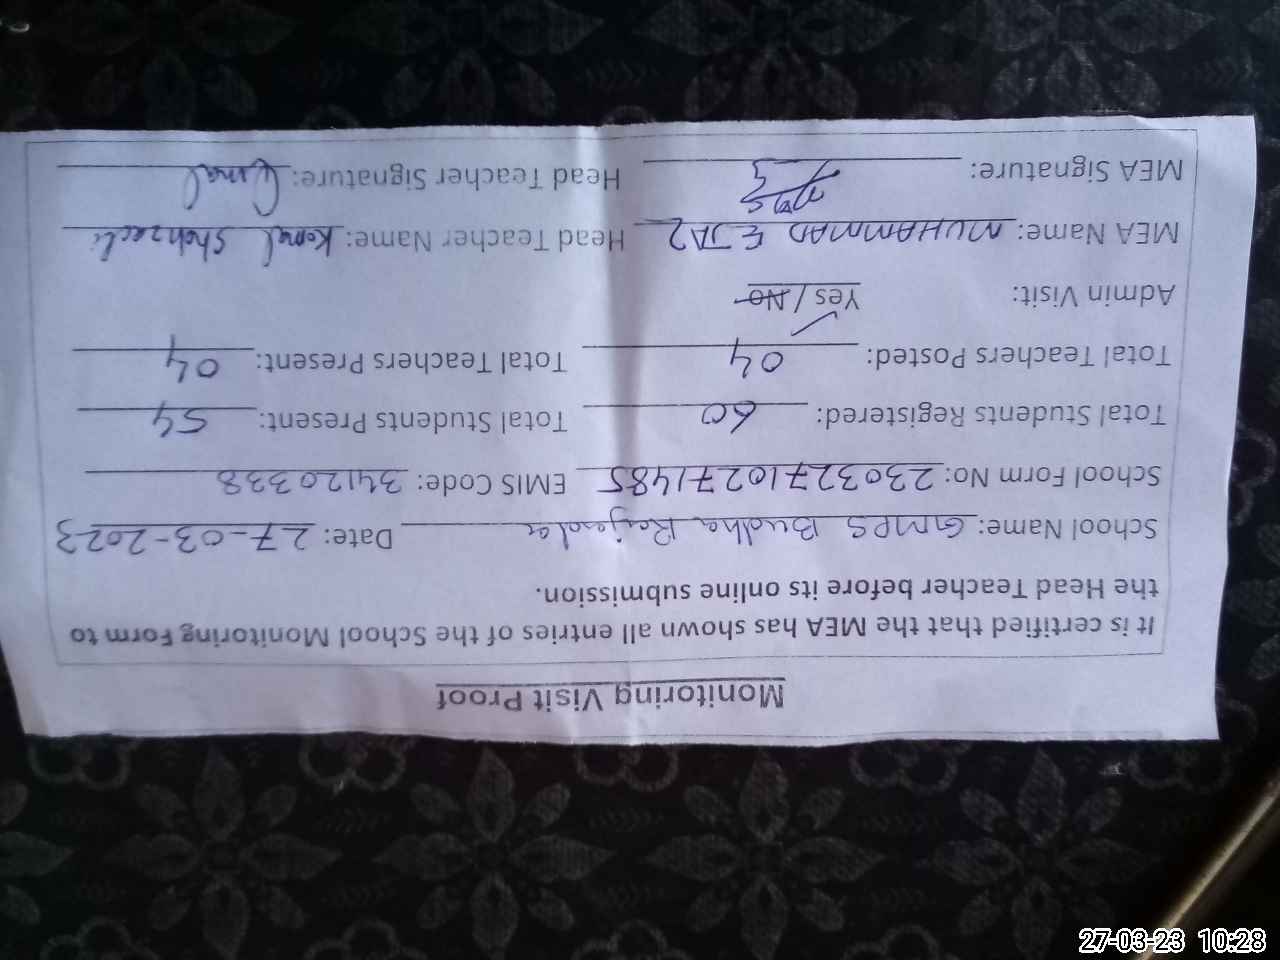 Monitoring Visit Proof
It is certified that the MEA has shown all entries of the School Monitoring Form to
the Head Teacher before its online submission.
School Name: GMPS Budha Rajesda Date: 27-03-2023
School Form No: 23032710271485 EMIS Code: 34120338
Total Students Registered: 60 Total Students Present: 54
Total Teachers Posted: 04 Total Teachers Present: 04
Admin Visit: Yes / No
MEA Name: MUHAMMAD EJAZ Head Teacher Name: Komal Shahzadi
MEA Signature: Head Teacher Signature: Komal
27-03-23 10:28